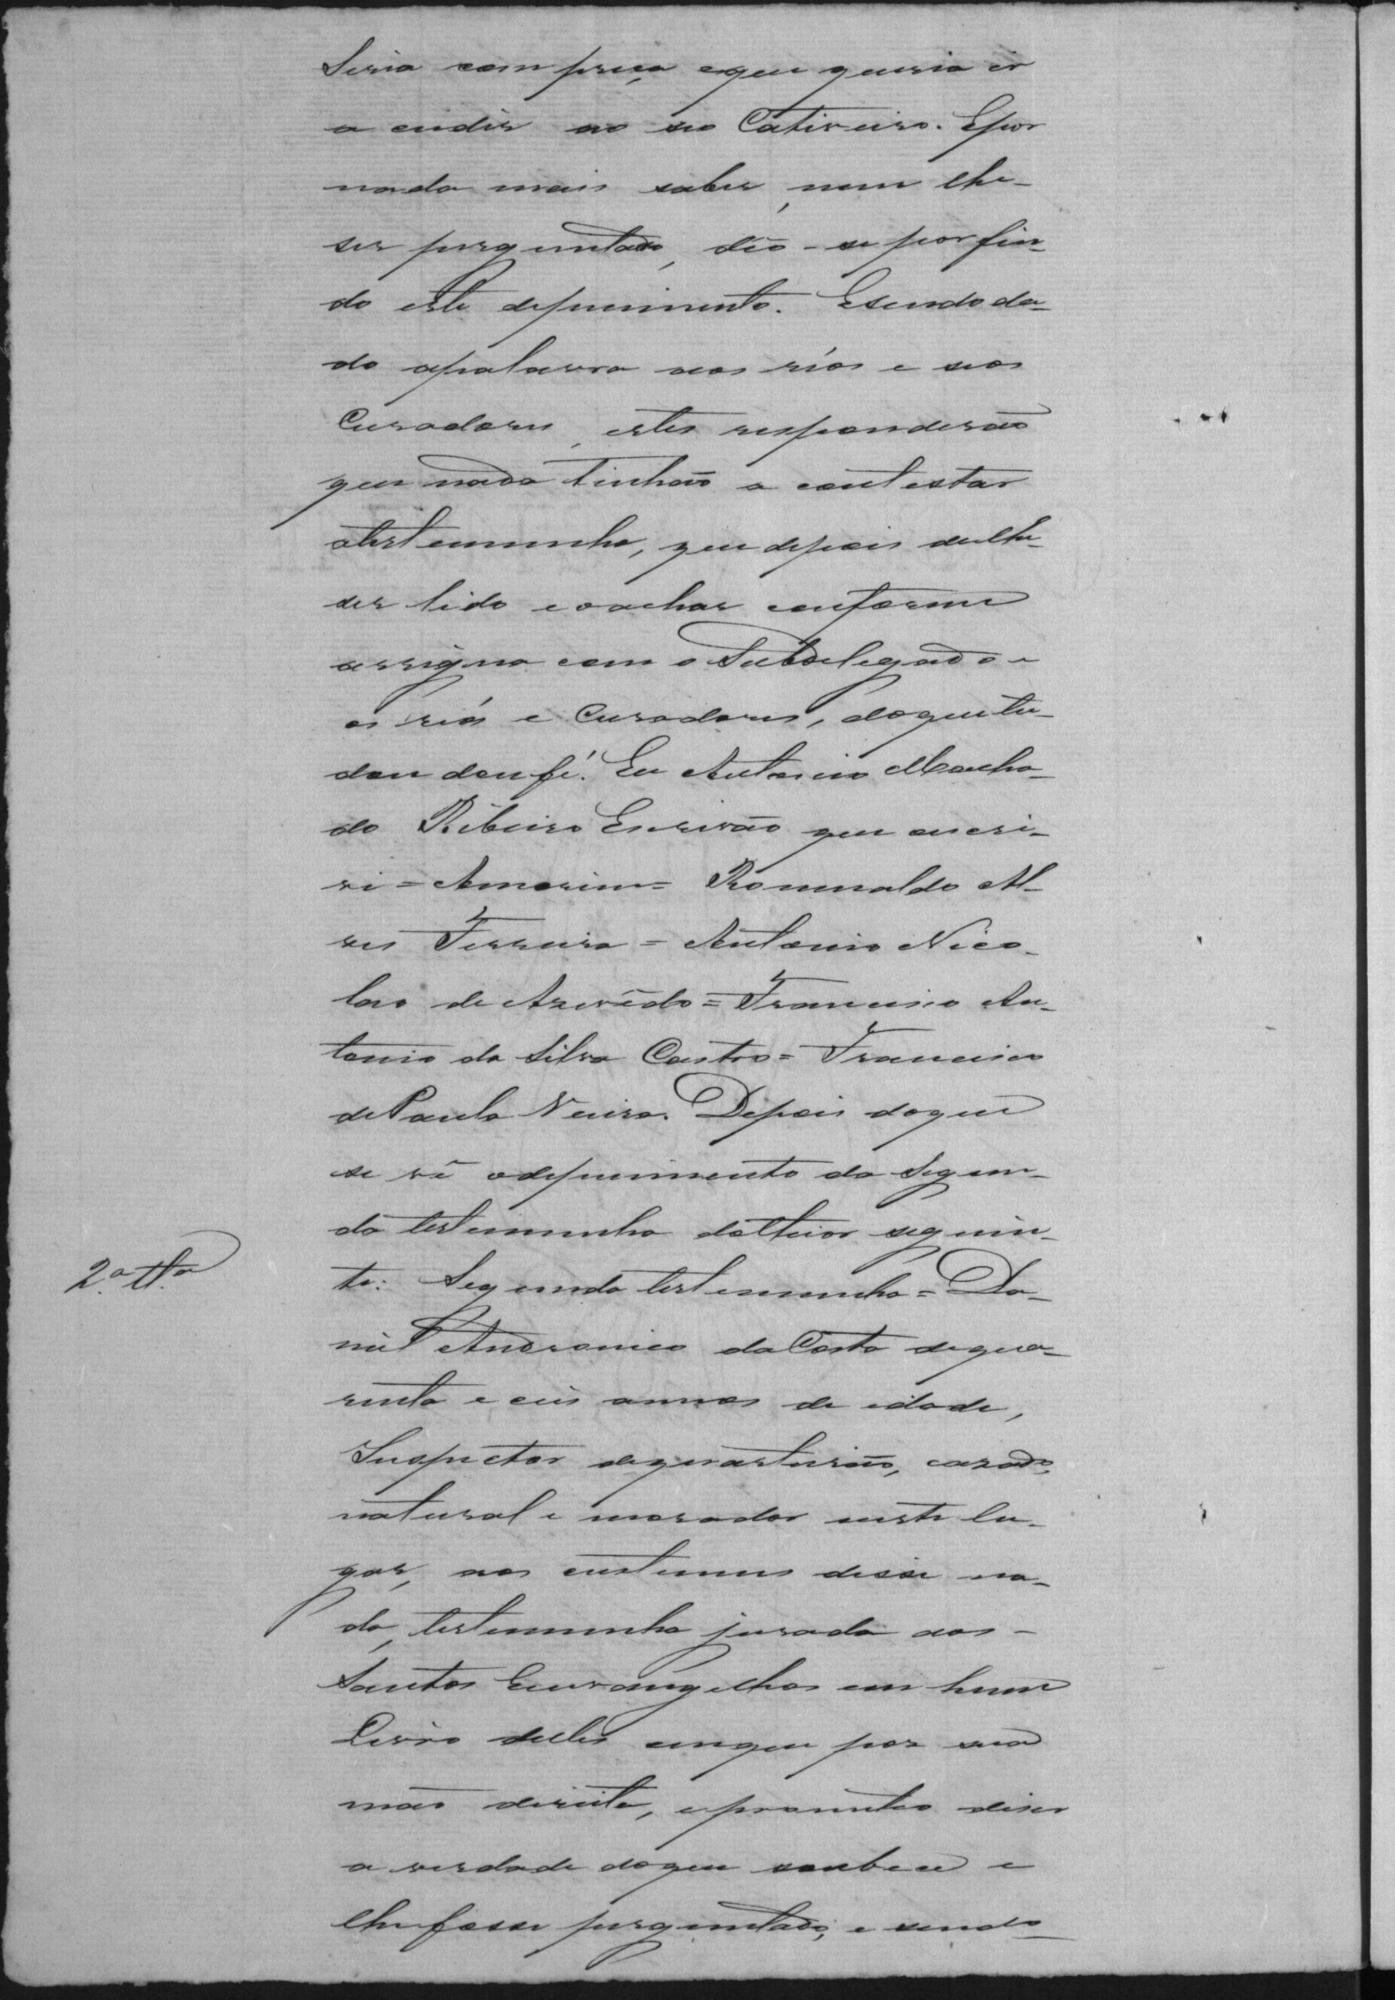 Seria com preça eque queria ir
a cudir ao seo Cativeiro. Epor
nada mais saber, nem lhe-
ser perguntado, deo-se por fin-
do este depuimento. Esendo da-
do apalavra aos réos e seos
Curadores, estes responderão
que nada tinhão a contestar
atestemunha, que depois delhe-
ser lido e o achar conforme
assigna com o Subdelegado e
os réos e Curadores, doque tu-
do eu dou fé. Eu Antonio Macha-
do Ribeiro Escrivão que escri-
vi = Amorim = Romualdo Al-
ves Ferreira = Antonio Nico-
lao de Azevêdo = Francisco An-
tonio da Silva Castro = Francisco
de Paula Neiva. Depois do que
se vê odepuimento da Segun-
da testemunha dotheor seguin-
te: Segunda testemunha = Da-
2.ª tt.ª
niel Andronico da Costa de qua-
renta e seis annos de idade,
Inspector de quarteirão, casado,
natural e morador neste lu-
gar, aos custumes disse na-
da, testemunha jurada aos-
Santos Euvangelhos em hum
Livro delles em que pos sua
mão direita, e prometeo diser
a verdade do que soubece e
lhe fosse perguntado, e sendo